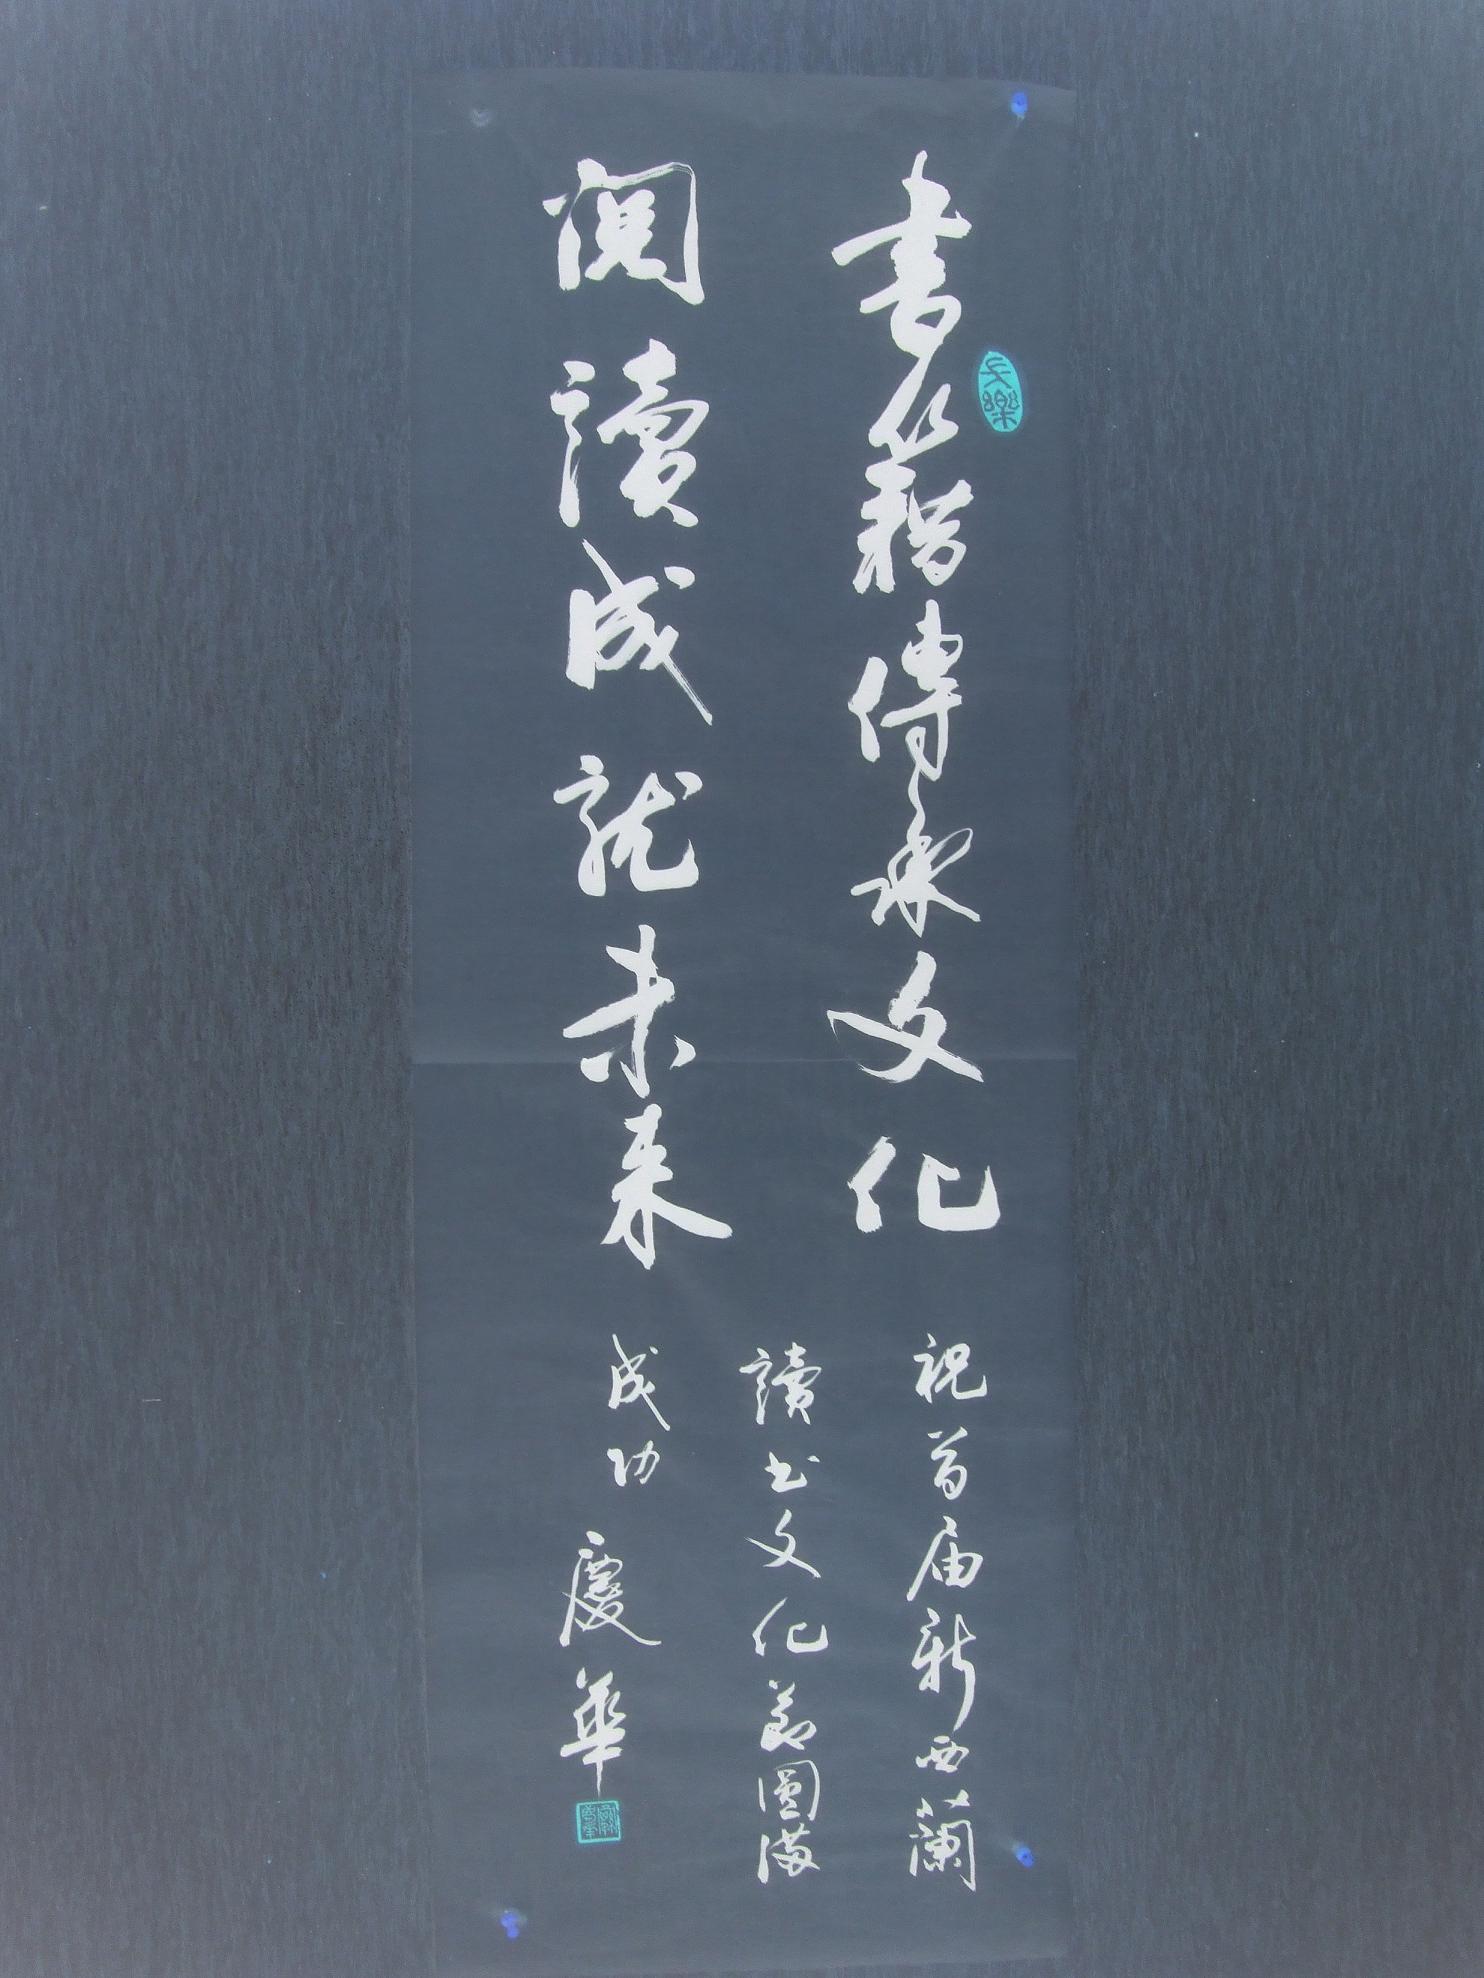 書籍傳承文化
閱讀成就未来
祝首届新西蘭
讀书文化節圓滿
成功
慶華